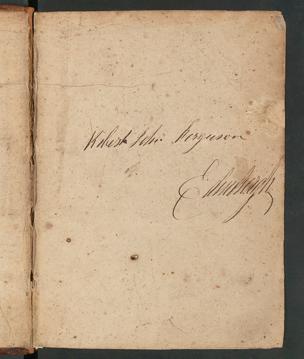 Robert John Ferguson
Edinburgh